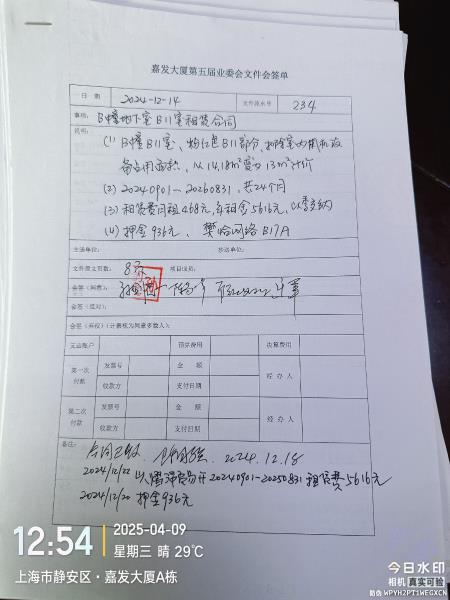 嘉发大厦第五届业委会文件会签单
日 期 2024-12-14 文件流水号 234
事项: B幢地下室B11室租赁合同
说明: (1) B幢B11室、粉红色B11部分,扣除室内
备占用面积,从14.18m²变为13m²计价
(2) 20240901-20260831,共24个月
(3) 租赁费月租468元,年租金5616元,以季交纳
(4) 押金936元、樊哈网络B17A
主送单位: 抄送单位:
文件原文页数: 8页 项目议员:
会签(同意):
会签(反对):
会签(弃权)(计票视为同意多数人):
支出账户 预算费用 决算费用
第一次付款 发票号 金 额 经 办 人
收款方 支付日期
第二次付款 发票号 金 额 经 办 人
收款方 支付日期
备注: 合同已收 2024.12.18
2024/12/22 开20240901-20250831租赁费5616元
2024/12/20 押金936元
12:54 2025-04-09
星期三 晴 29℃
上海市静安区·嘉发大厦A栋
今日水印
相机 真实可验
防伪 WPYH2PT1WEGXCN